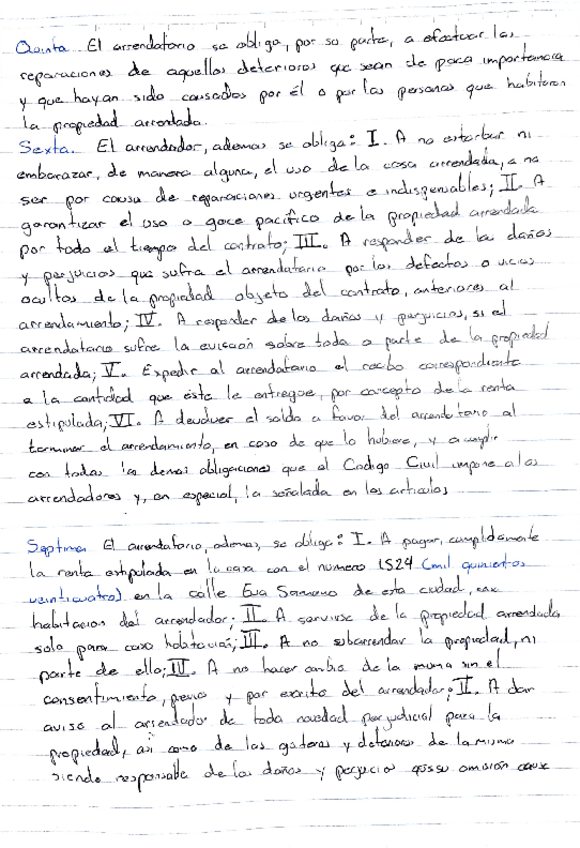 Quinta El arrendatario se obliga, por su parte, a efectuar las
reparaciones de aquellos deterioros que sean de poca importancia
y que hayan sido causados por él o por las personas que habitaron
la propiedad arrendada.
Sexta. El arrendador, ademas se obliga: I. A no estorbar ni
embarazar, de manera alguna, el uso de la cosa arrendada, a no
ser por causa de reparaciones urgentes e indispensables; II. A
garantizar el uso o goce pacífico de la propiedad arrendada
por todo el tiempo del contrato; III. A responder de los daños
y perjuicios que sufra el arrendatario por los defectos o vicios
ocultos de la propiedad objeto del contrato, anteriores al
arrendamiento; IV. A responder de los daños y perjuicios, si el
arrendatario sufre la evicción sobre toda o parte de la propiedad
arrendada; V. Expedir al arrendatario el recibo correspondiente
a la cantidad que éste le entregue, por concepto de la renta
estipulada; VI. A devolver el saldo a favor del arrendatario al
terminar el arrendamiento, en caso de que lo hubiere, y a cumplir
con todas las demas obligaciones que el Codigo Civil impone a los
arrendadores y, en especial, la señalada en los articulos
Septima El arrendatario, ademas, se obliga: I. A pagar, cumplidamente
la renta estipulada en la casa con el numero 1524 (mil quinientos
veinticuatro) en la calle Eva Samano de esta ciudad,
habitacion del arrendador; II. A servirse de la propiedad arrendada
solo para casa habitacion; III. A no subarrendar la propiedad, ni
parte de ella; IV. A no hacer cambio de la misma sin el
consentimiento, previo y por escrito del arrendador; V. A dar
aviso al arrendador de toda novedad perjudicial para la
propiedad, asi como de las goteras y deterioros de la misma
siendo responsable de los daños y perjucios su omisión cause